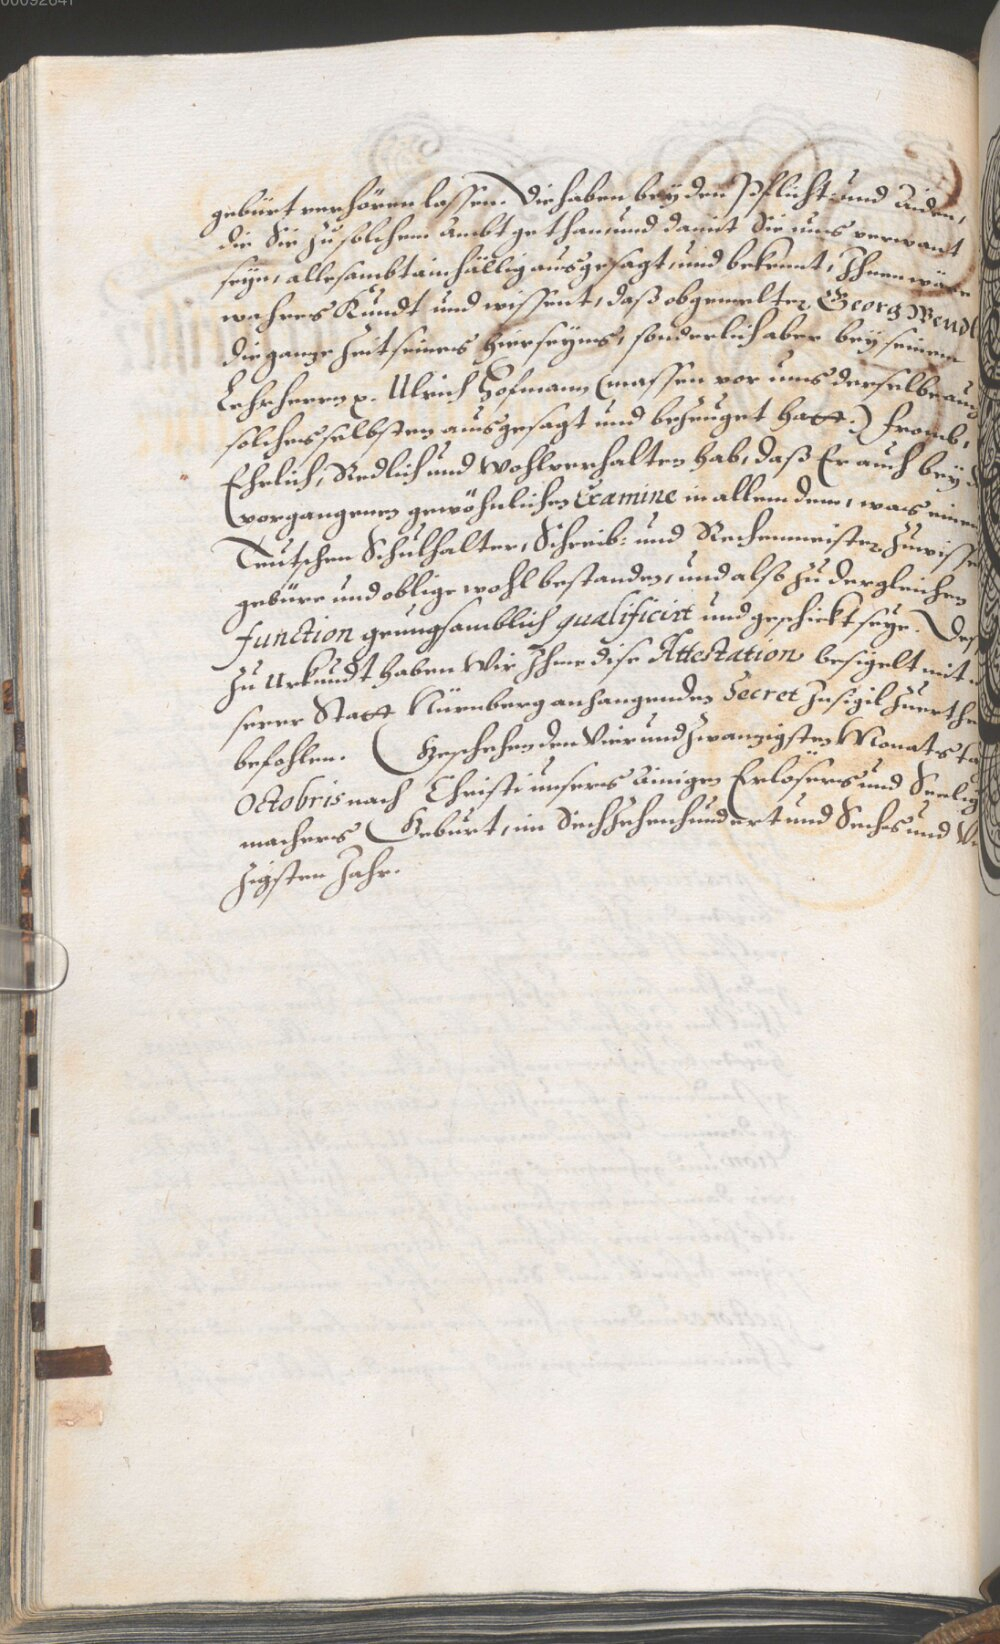 00092641
gebürt verhören lassen. Die haben bey den Pflicht: und Aiden,
die Sie zu solchem Ambt gethan, und damit Sie uns verwant
seyn, allesambt ainhällig ausgesagt, und bekennt, Ihnen wäre
wahres Kundt und wissent, daß obgemelter Georg Wendl
die ganze Zeit seines hierseyns, sonderlich aber bey seinem
Lehrherrn Ulrich Hofmann (massen vor uns derselbe auch
solches selbsten ausgesagt und bezeuget hatt.) fromb,
Ehrlich, Redlich und wohl verhalten hab, daß Er auch bey
vorgangenen gewöhnlichen Examine in allem dem, was einem
Teutschen Schulhalter, Schreib: und Rechenmeister zuwissen
gebüre und oblige wohl bestanden, und also zu dergleichen
function genungsamblich qualificirt und geschickt seye. Des
zu Urkundt haben Wir Ihme dise Attestation besigelt mit
serer Statt Nürnberg anhangenden Secret Insigil zuerthe
befohlen. Geschehen den Vier und zwanzigsten Monats ta
Octobris nach Christi unsers ainigen Erlösers und Seelig
machers Geburt, im Sechzehenhundert und Sechs und
zigsten Jahr.